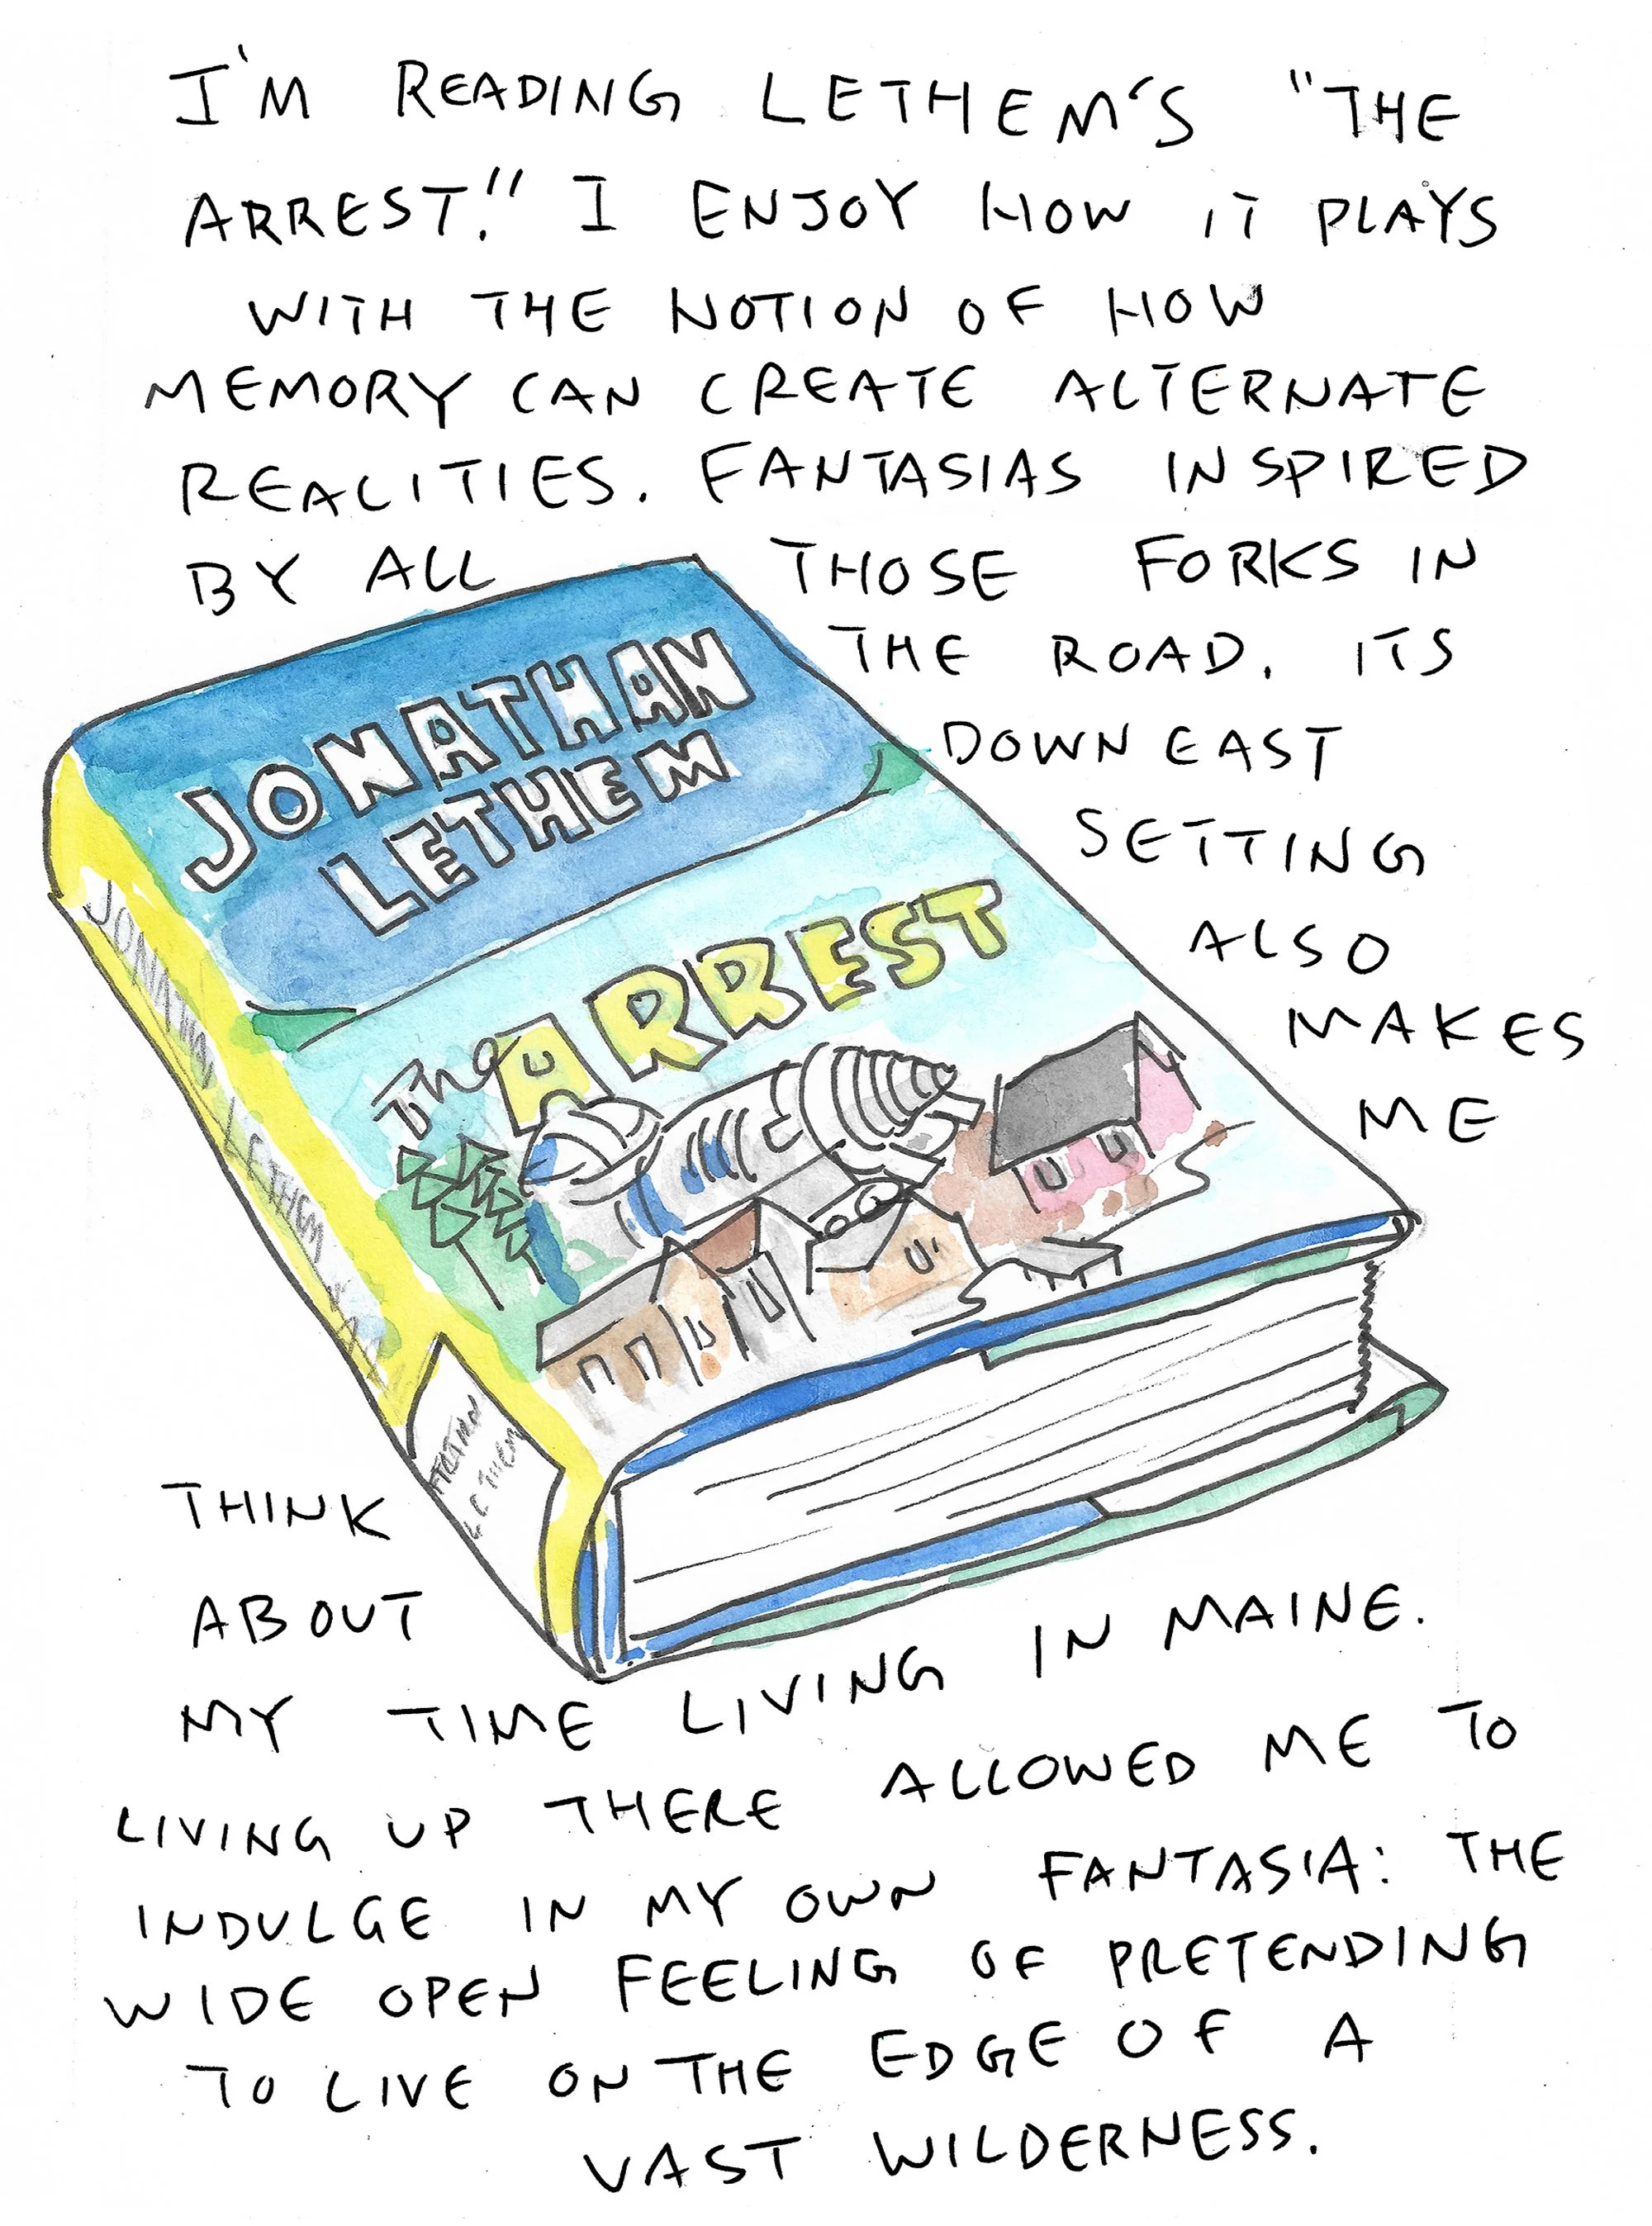 I'M READING LETHEM'S "THE
ARREST." I ENJOY HOW IT PLAYS
WITH THE NOTION OF HOW
MEMORY CAN CREATE ALTERNATE
REALITIES. FANTASIAS INSPIRED
BY ALL THOSE FORKS IN
THE ROAD. ITS
DOWN EAST
SETTING
ALSO
MAKES
ME
JONATHAN
LETHEM
The ARREST
JONATHAN LETHEM
LETHEM
THINK
ABOUT
MY TIME LIVING IN MAINE.
LIVING UP THERE ALLOWED ME TO
INDULGE IN MY OWN FANTASIA: THE
WIDE OPEN FEELING OF PRETENDING
TO LIVE ON THE EDGE OF A
VAST WILDERNESS.